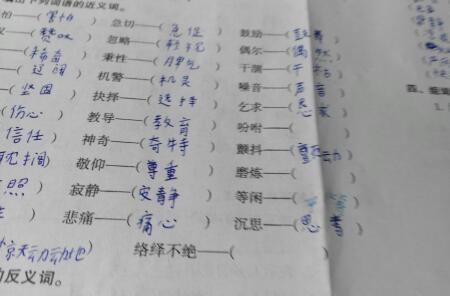 出下列词语的近义词。
怕——(害怕) 急切——(急促) 鼓励——(
(赞叹) 忽略——( ) 偶尔——(偶然)
(稀奇) 秉性——(脾气) 干涸——(干枯)
(辽阔) 机警——(机灵) 噪音——(声音)
(坚固) 抉择——(选择) 乞求——(恳求)
(伤心) 教导——(教育) 吩咐——( )
信任) 神奇——(奇特) 颤抖——( 动)
耽搁) 敬仰——(尊重) 磨炼——( )
照) 寂静——(安静) 等闲——( )
) 悲痛——(痛心) 沉思——(思考)
惊天动地) 络绎不绝——(
的反义词。
四、